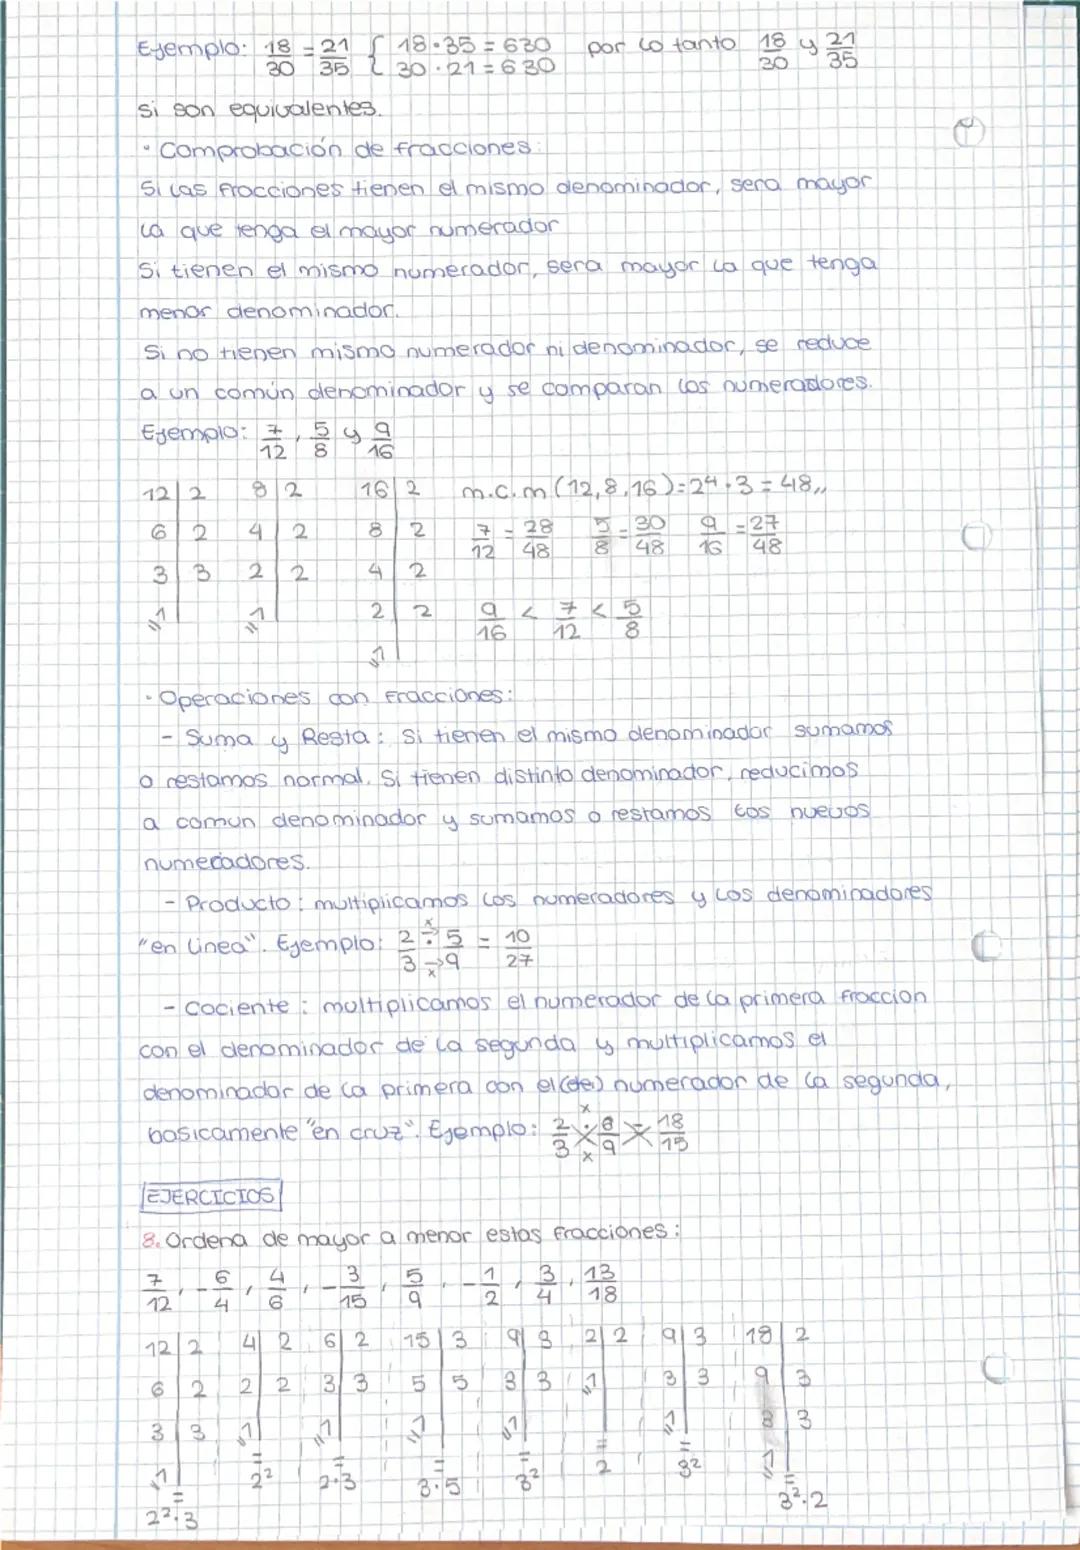 Ejemplo: 18/30 = 21/35 { 18·35 = 630 30·21 = 630 por lo tanto 18/30 y 21/35
si son equivalentes.
· Comprobación de fracciones:
Si las fracciones tienen el mismo denominador, sera mayor
la que tenga el mayor numerador
Si tienen el mismo numerador, sera mayor la que tenga
menor denominador.
Si no tienen mismo numerador ni denominador, se reduce
a un común denominador y se comparan los numeradores.
Ejemplo: 7/12, 5/8 y 9/16
12 | 2 8 | 2 16 | 2 m.c.m (12,8,16) = 2⁴·3 = 48,,
6 | 2 4 | 2 8 | 2 7/12 = 28/48 5/8 = 30/48 9/16 = 27/48
3 | 3 2 | 2 4 | 2
1 | 1 | 2 | 2 9/16 < 7/12 < 5/8
1 |
· Operaciones con fracciones:
- Suma y Resta: si tienen el mismo denominador sumamos
o restamos normal. Si tienen distinto denominador, reducimos
a comun denominador y sumamos o restamos los nuevos
numeradores.
- Producto: multiplicamos los numeradores y los denominadores
"en linea". Ejemplo: 2/3 · 5/9 = 10/27
x
→
→
x
- Cociente: multiplicamos el numerador de la primera fraccion
con el denominador de la segunda y multiplicamos el
denominador de la primera con el (de) numerador de la segunda,
basicamente "en cruz". Ejemplo: 2/3 : /9 = 18/15
x
x
EJERCICIOS
8. Ordena de mayor a menor estas fracciones:
7/12, -6/4, 4/6, -3/15, 5/9, -1/2, 3/4, 13/18
12 | 2 4 | 2 6 | 2 15 | 3 9 | 3 2 | 2 9 | 3 18 | 2
6 | 2 2 | 2 3 | 3 5 | 5 3 | 3 1 3 | 3 9 | 3
3 | 3 1 | 1 | 1 | 1 | 1 | 3 | 3
1 | = 2² = 2·3 = 3·5 = 3² = 2 = 3² 1 |
= 2²·3 = 3²·2